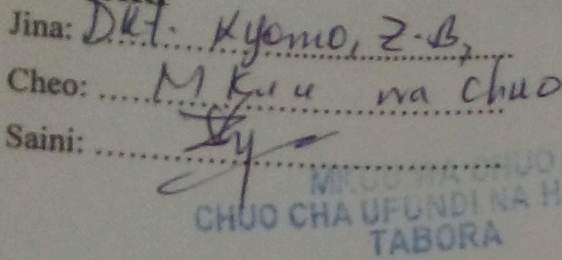 Jina: Dkt. Kyomo, Z.B,
Cheo: Mkuu wa Chuo
Saini:
MKUU WA CHUO
CHUO CHA UFUNDI NA H
TABORA